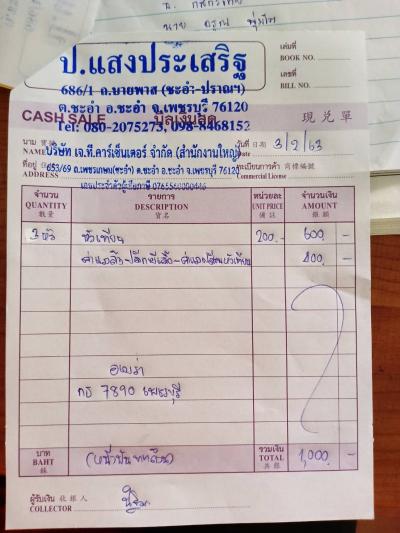 ป.แสงประเสริฐ
686/1 ถ.บายพาส (ชะอำ-ปราณฯ)
ต.ชะอำ อ.ชะอำ จ.เพชรบุรี 76120
Tel: 080-2075273, 098-8468152
เล่มที่
BOOK NO.
เลขที่
BILL NO.
CASH SALE บิลเงินสด 現兌單
นาม
NAME บริษัท เจ.ที.คาร์เซ็นเตอร์ จำกัด (สำนักงานใหญ่)
วันที่ 日期 3/2/63
Date
ที่อยู่
ADDRESS 653/69 ถ.เพชรเกษม(ชะอำ) ต.ชะอำ อ.ชะอำ จ.เพชรบุรี 76120
ทะเบียนการค้า 商標編號
Commercial License
เลขประจำตัวผู้เสียภาษี
จำนวน รายการ หน่วยละ จำนวนเงิน
QUANTITY DESCRIPTION UNIT PRICE AMOUNT
數量 貨名 備註 銀額
3 หัว หัวเทียน 200.- 600.-
400.-
กธ 7890 เพชรบุรี
บาท (หนึ่งพันบาทถ้วน) รวมเงิน 1,000.-
BAHT TOTAL
銖 共銀
ผู้รับเงิน 收銀人
COLLECTOR